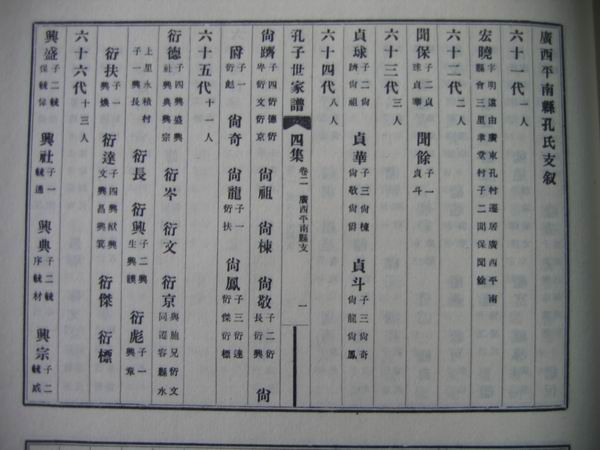 廣西平南縣孔氏支叙
六十一代 一人
宏曉 字明遠由廣東孔村遷居廣西平南縣會三里孝堂村子二聞保聞餘
六十二代 二人
聞保 子二貞球貞華 聞餘 子一貞斗
六十三代 三人
貞球 子二尙躋尙祖 貞華 子三尙棟尙敬尙爵 貞斗 子三尙奇尙龍尙鳳
六十四代 八人
孔子世家譜 四集 卷二 廣西平南縣支 一
尙躋 子四衍德衍岑衍文衍京 尙祖 尙棟 尙敬 子二衍長衍興 尙
爵 子一衍彪 尙奇 尙龍 子一衍扶 尙鳳 子三衍達衍傑衍標
六十五代 十一人
衍德 子四興盛興社興典興宗 衍岑 衍文 衍京 與胞兄衍文同遷容縣水
上里永積村子一興長 衍長 衍興 子二興生興謨 衍彪 子一興章
衍扶 子一興煥 衍達 子四興猷興文興昌興冀 衍傑 衍標
六十六代 十三人
興盛 子二毓保毓偉 興社 子一毓通 興典 子二毓序毓材 興宗 子二毓成